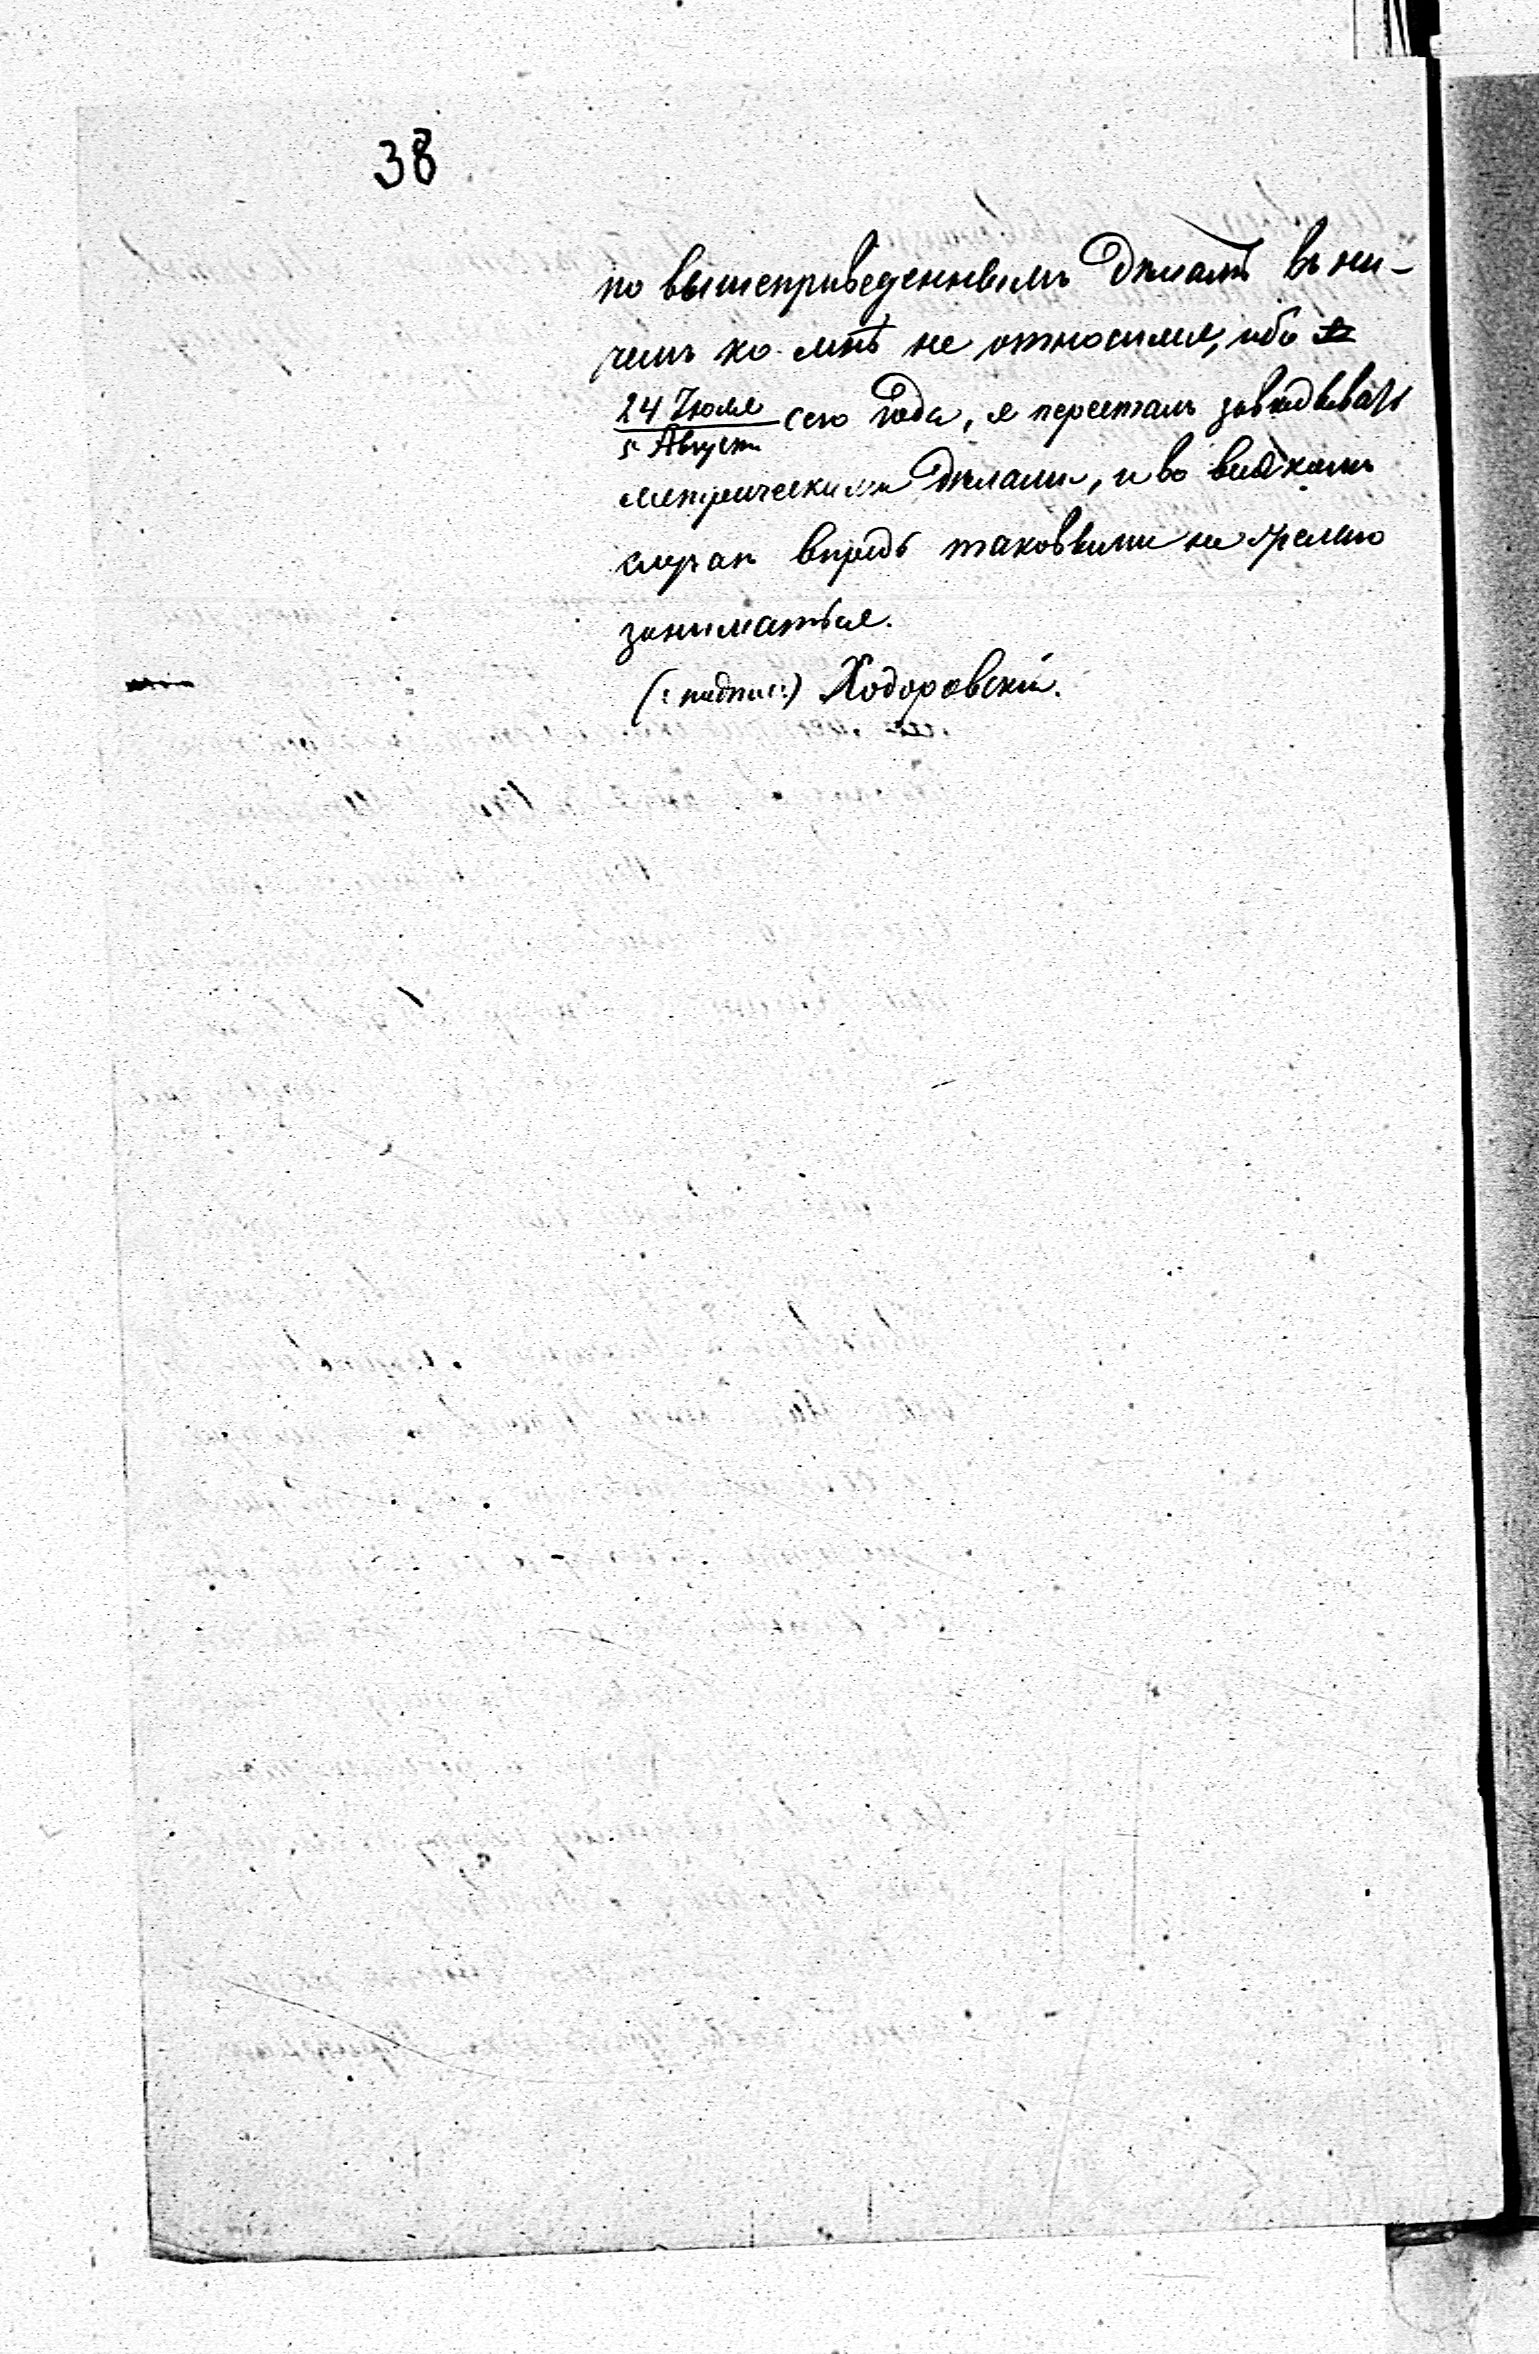 38
по вышеприведеннымъ дѣламъ въ ни-
чемъ ко мнѣ не относимся, ибо
24 Іюля
5 Августа сего года, я пересталъ завѣдывать
метрическими дѣлами, и во всякомъ
случаѣ впредь таковыми не желаю
заниматься.
(:подпис:) Ходоровскій.